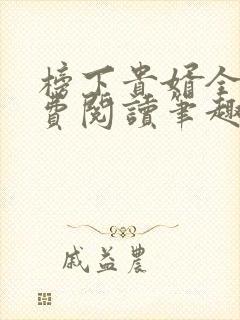 榜下貴婿全
費閱讀筆趣
戚益農